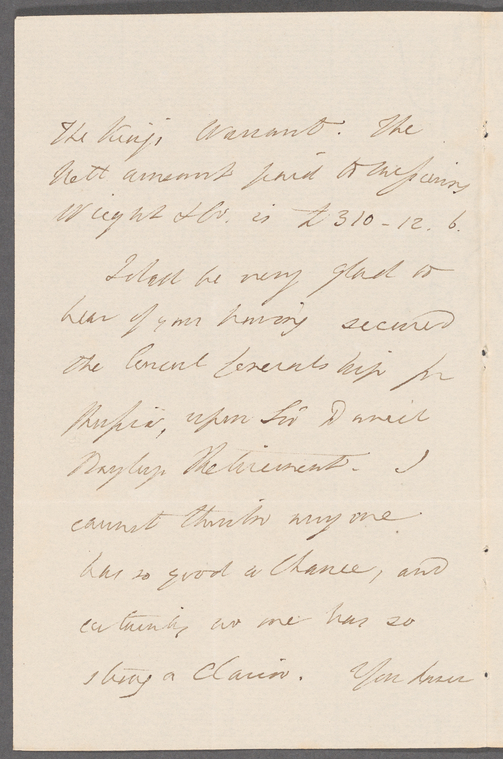 the King's Warrant. The
Nett amount paid to Messieurs
Wright & Co. is £310-12.6.
I shall be very glad to
hear of your having secured
the Consul Generalship for
Russia, upon Sir Daniel
Bayley's Retirement. I
cannot think any one
has so good a Chance, and
certainly no one has so
strong a Claim. You